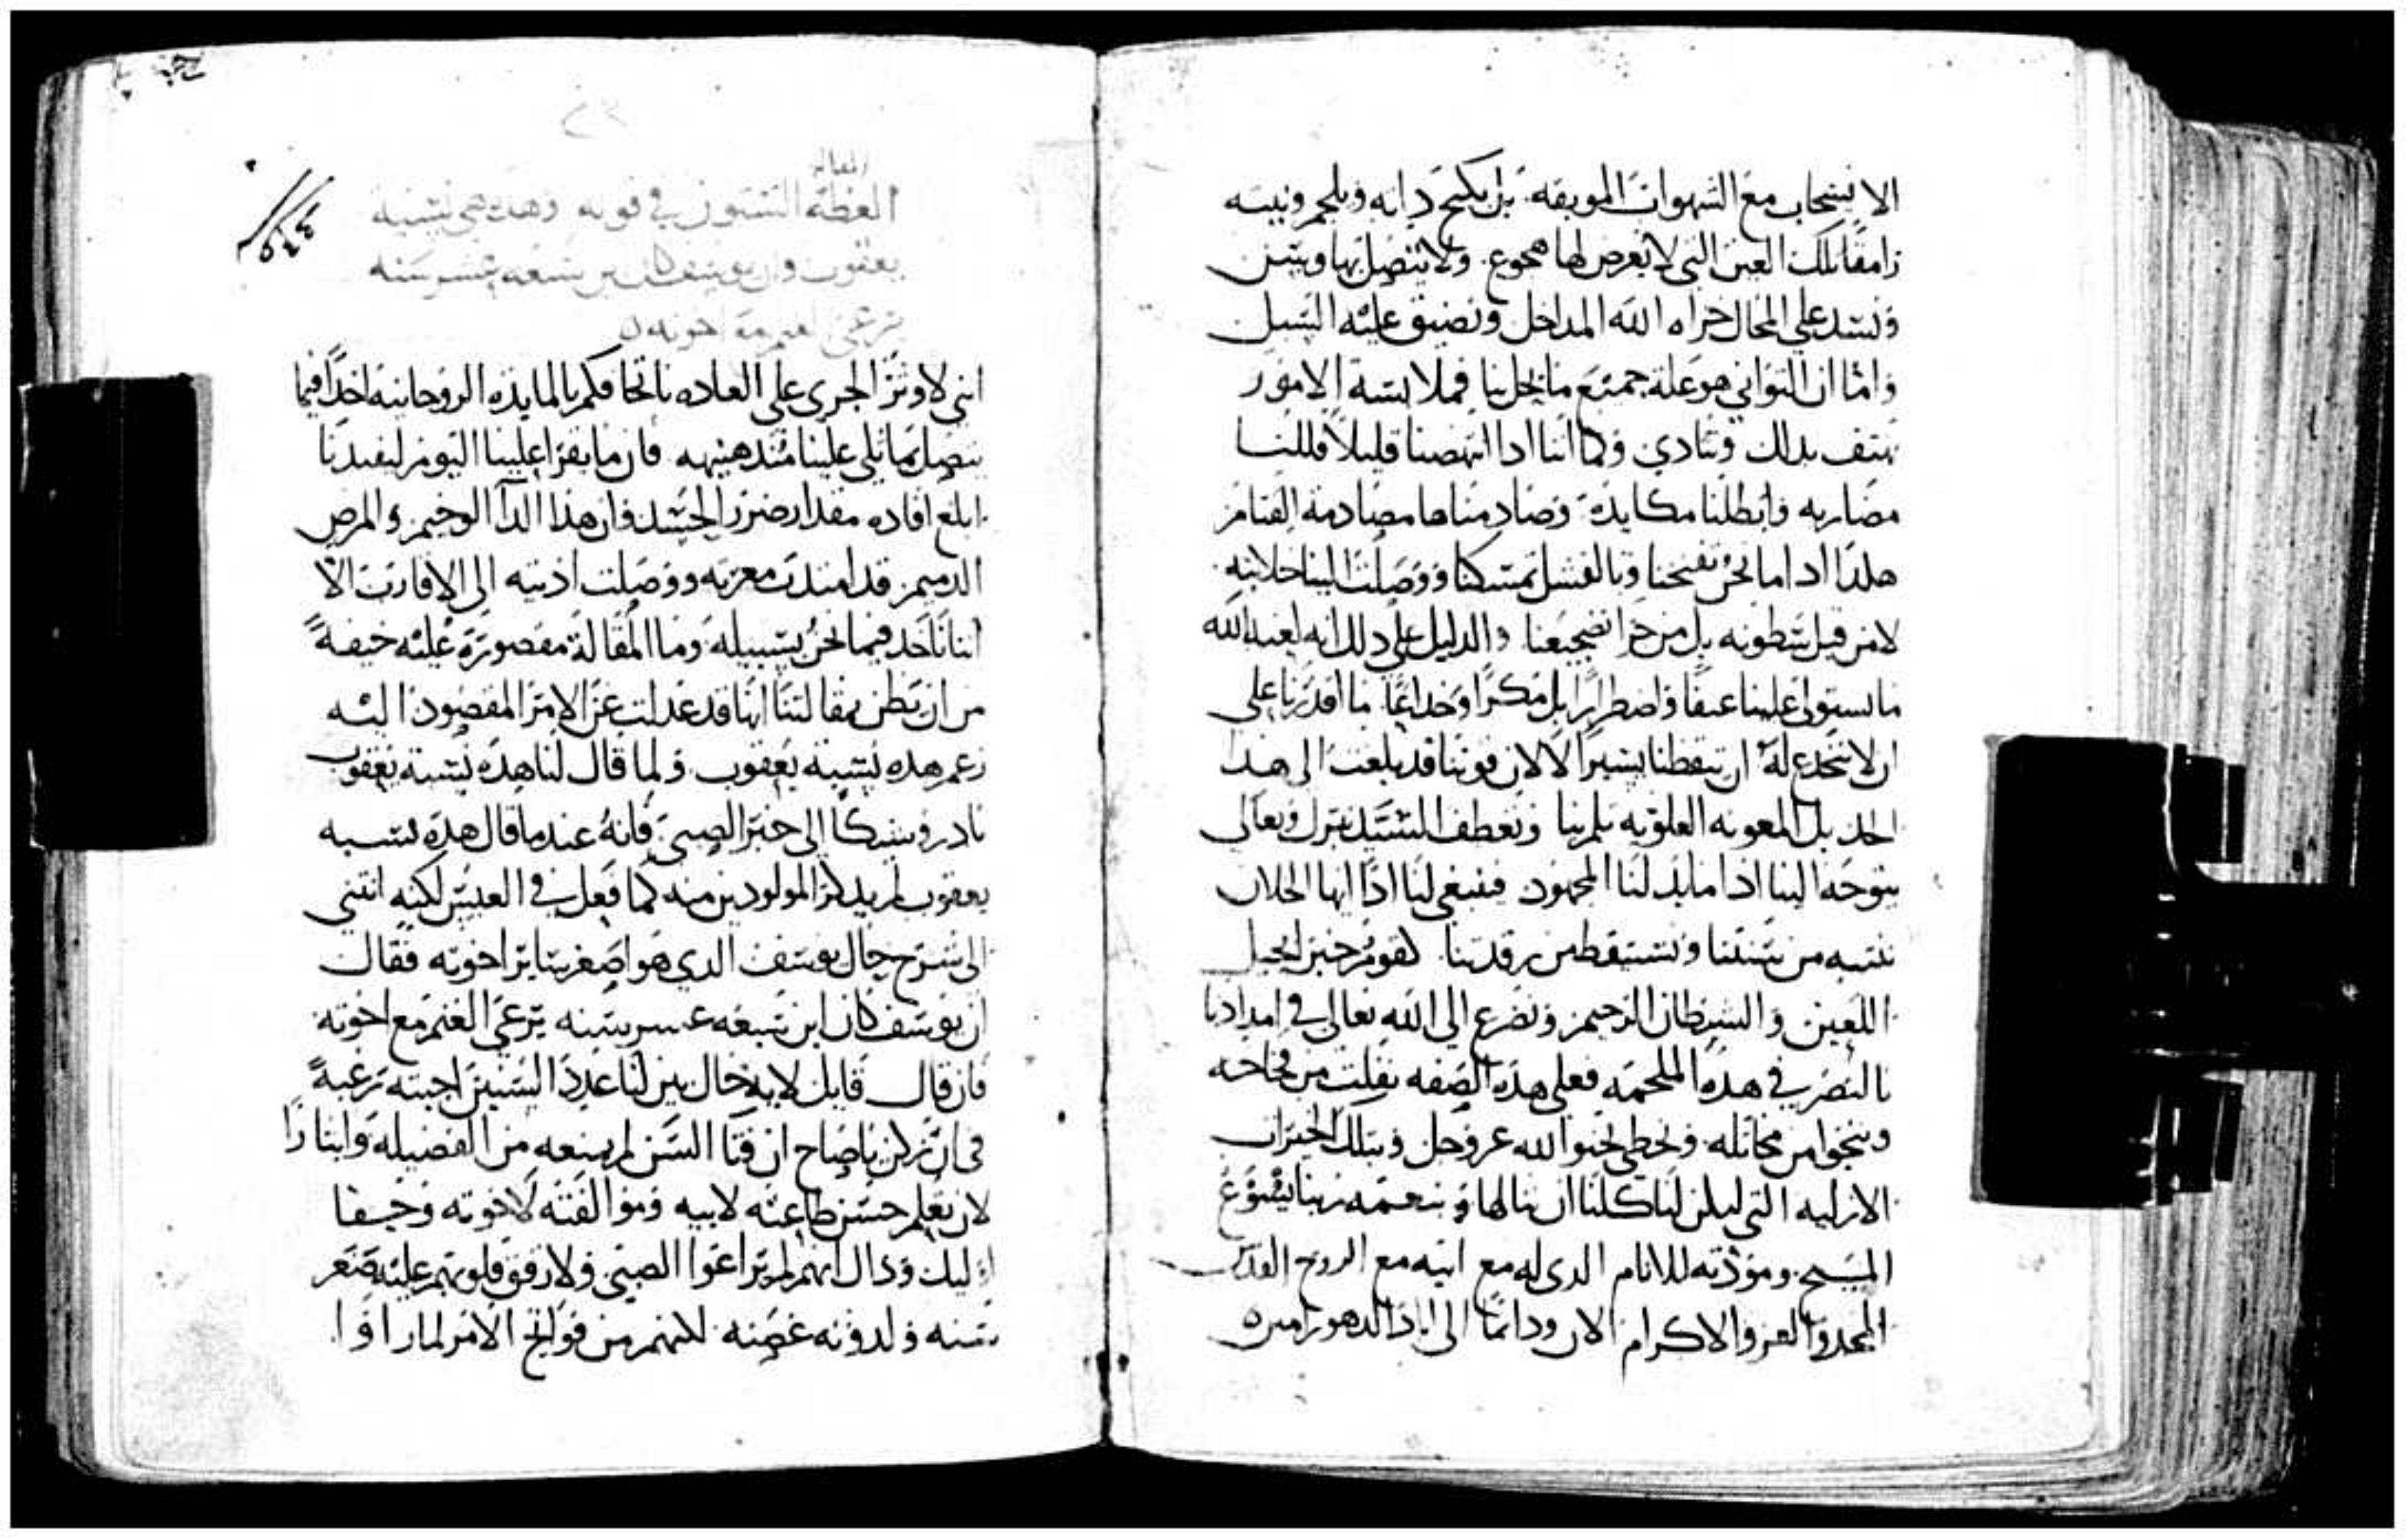 الانسحاب مع الشهوات الموبقه. بل يكبح دابه ويلجم وثبته
رامقا تلك العين التي لا يعرض لها هجوع. ولا يتصل بها وسن
ونسد على المحال خزاه الله المداخل ونضيق عليه السبل
واما ان التواني هو علة جميع ما يحل بنا فملابسة الامور
تهتف بذلك وتنادي وكما اننا اذا انتهضنا قليلا فللنا
مضاربه وابطلنا مكايده وصادمناها مصادمة القتام
هكذا اذا ما نحن تفسحنا وبالفشل تمسكنا ووصلت الينا خلابته
لا من قبل سطوته بل من جرا تضجيعنا والدليل على ذلك انه لعنه الله
ما يستولى علينا عنفا واضطرارا بل مكرا وخداعا ما اقدرنا على
ان لا ننخدع له ان تيقظنا يسيرا لا لان قوتنا قد بلغت الى هذا
الحد بل المعونه العلويه تلم بنا وتعطف السيد تبرك وتعالى
يتوجه الينا اذا ما بذلنا المجهود فينبغي لنا اذا ايها الخلان
ننتبه من سنتنا ونستيقظ من رقدتنا. لقوم خنبز لحيل
اللعين والشيطان الرجيم ونضرع الى الله تعالى في امدادنا
بالنصر في هذه الملحمه فعلى هذه الصفه نفلت من فخاخه
وننجوا من مخاتله ونحظى بحنو الله عز وجل وبتلك الخيرات
الازليه التي ليكن لنا كلنا ان ننالها بنعمة ربنا يسوع
المسيح ومودته للانام الذي له مع ابيه مع الروح القدس
المجد والعز والاكرام الان ودائما الى اباد الدهور امين
المقاله
العظة الستون في قوله وهذه هي نسبة
يعقوب وان يوسف كان ابن سبعه عشر سنه
يرعى الغنم مع اخوته
٥٤٤
انني لاوثر الجري على العاده باتحافكم بالمايده الروحانيه اخذا فيما
يتصل بما تلي علينا منذ هنيهه فان ما يقرا علينا اليوم ليفيدنا
ابلغ افاده مقدار ضرر الحسد وان هذا الدآ الوخيم والمرض
الذميم قد امتدت معرته ووصلت اذيته الى الاقارب الا
اننا ناخذ فيما نحن بسبيله وما المقالة مقصورة عليه خيفةً
من ان يظن بمقالتنا انها قد عدلت عن الامر المقصود اليه
زعم هذه نسبة يعقوب. ولما قال لنا هذه نسبة يعقوب
بادر وشيكا الى خبر الصبي فانه عندما قال هذه نسبه
يعقوب لم يذكر المولودين منه كما فعل في العيس لكنه انثنى
الى شرح حال يوسف الذي هو اصغر ساير اخوته فقال
ان يوسف كان ابن سبعه عشر سنه يرعى الغنم مع اخوته
فان قال قايل لاية حال بين لنا عدد السنين اجبته رغبةً
في ان تركن يا صاح ان فتا السن لم يمنعه من الفضيله وايثارا
لان تعلم حسن طاعته لابيه وموالفته لاخوته وحيفا
اوليك وذاك انهم لم يراعوا الصبي ولا رفق قلوبهم عليه صغر
سنه ولدونه غصنه لكنهم من فواتح الامر لما راوا